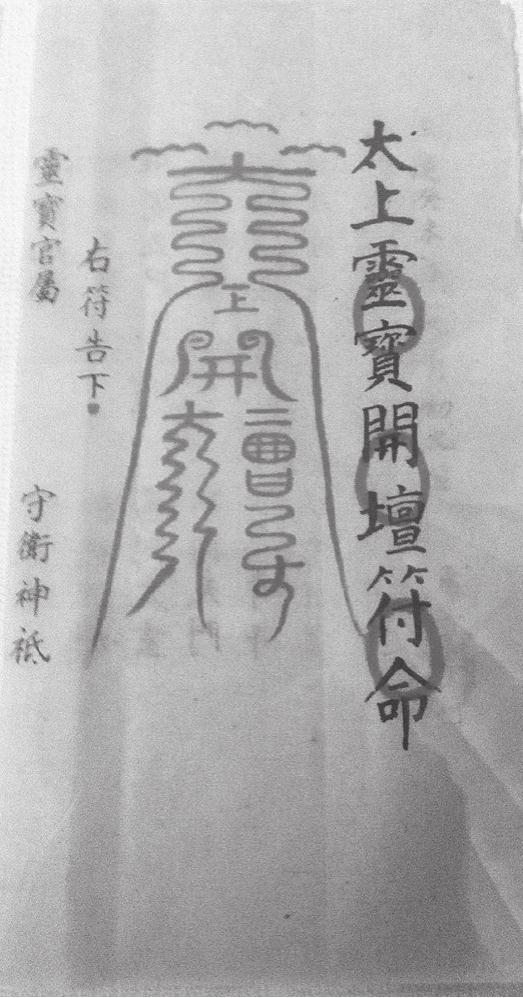 太上靈寶開壇符命
上
開
右符告下
靈寶官屬
守衛神祇